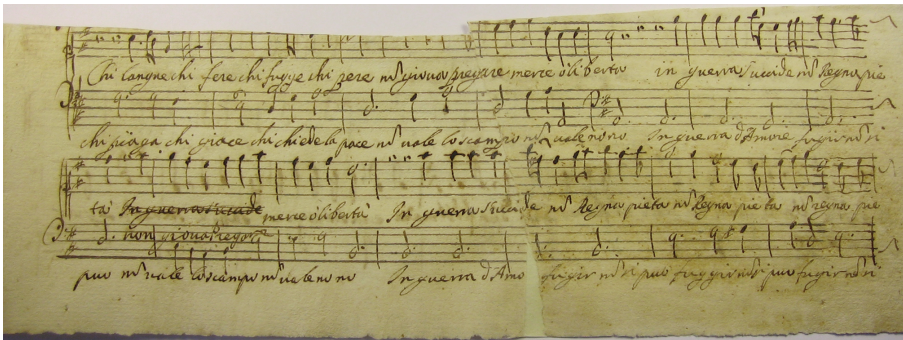 Chi langue chi fere chi fugge chi pere nō giova pregare merce ò libertà in guerra s'uccide nō Regna pie
chi piaga chi giace chi chiede la pace nō uale lo scampo nō uale no no In guerra d'Amore fugir nō si
ta In guerra s'ucide merce ò libertà In guerra s'uccide nō Regna pieta nō Regna pie ta nō regna pie
non giova Pregar
puo nō uale lo scampo nō uale no no In guerra d'Amo fugir nō si puo fuggir nō si puo fugir nō si